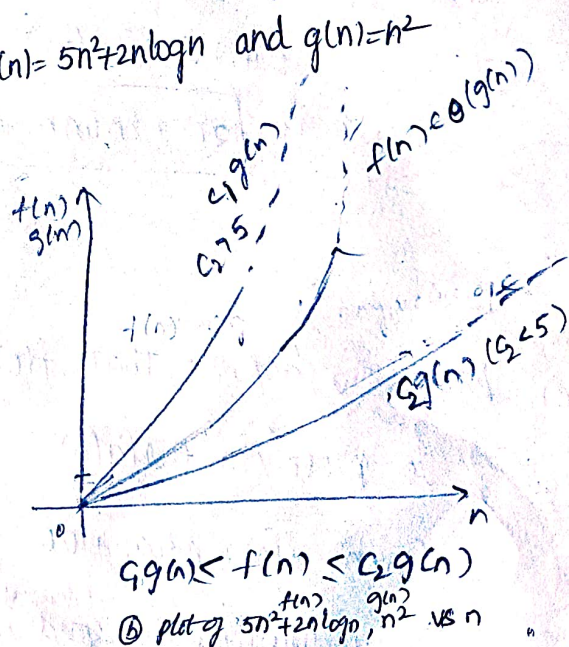 (n)= 5n²+2nlogn and g(n)=n²
f(n) ∈ θ(g(n))
C₁g(n)
C₂>5
f(n)
g(n)
f(n)
C₂g(n) (C₂<5)
0
n
C₁g(n) ≤ f(n) ≤ C₂g(n)
f(n) g(n)
ⓑ plot of 5n²+2nlogn, n² vs n